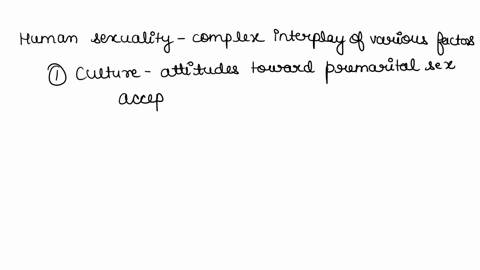 Human sexuality - complex interplay of various factors
① Culture - attitudes toward premarital sex
accep